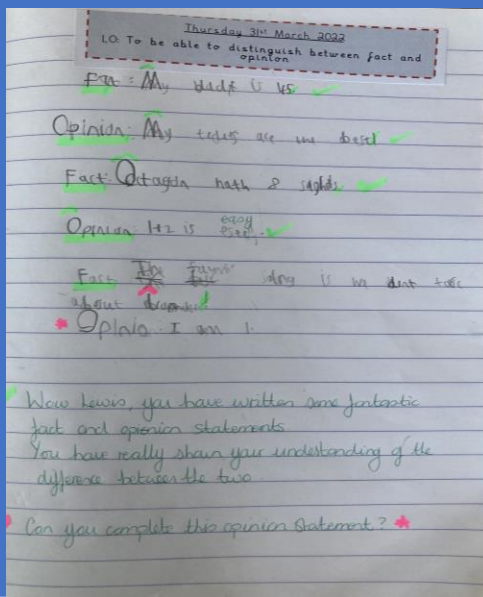 Thursday 31st March 2022
LO: To be able to distinguish between fact and
opinion
Fact: My dad is 45
Opinion: My are the best
Fact: Octagon hath 8
Opinion: 1+2 is easy
Fact: The song is we dont
about
* Opinio: I am 1.
Wow Lewis, you have written some fantastic
fact and opinion statements
You have really shown your understanding of the
difference between the two.
* Can you complete this opinion statement? *